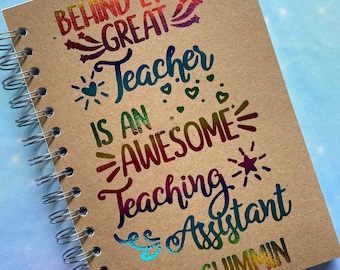 BEHIND
GREAT
Teacher
IS AN
AWESOME
Teaching
Assistant
SHIMMIN